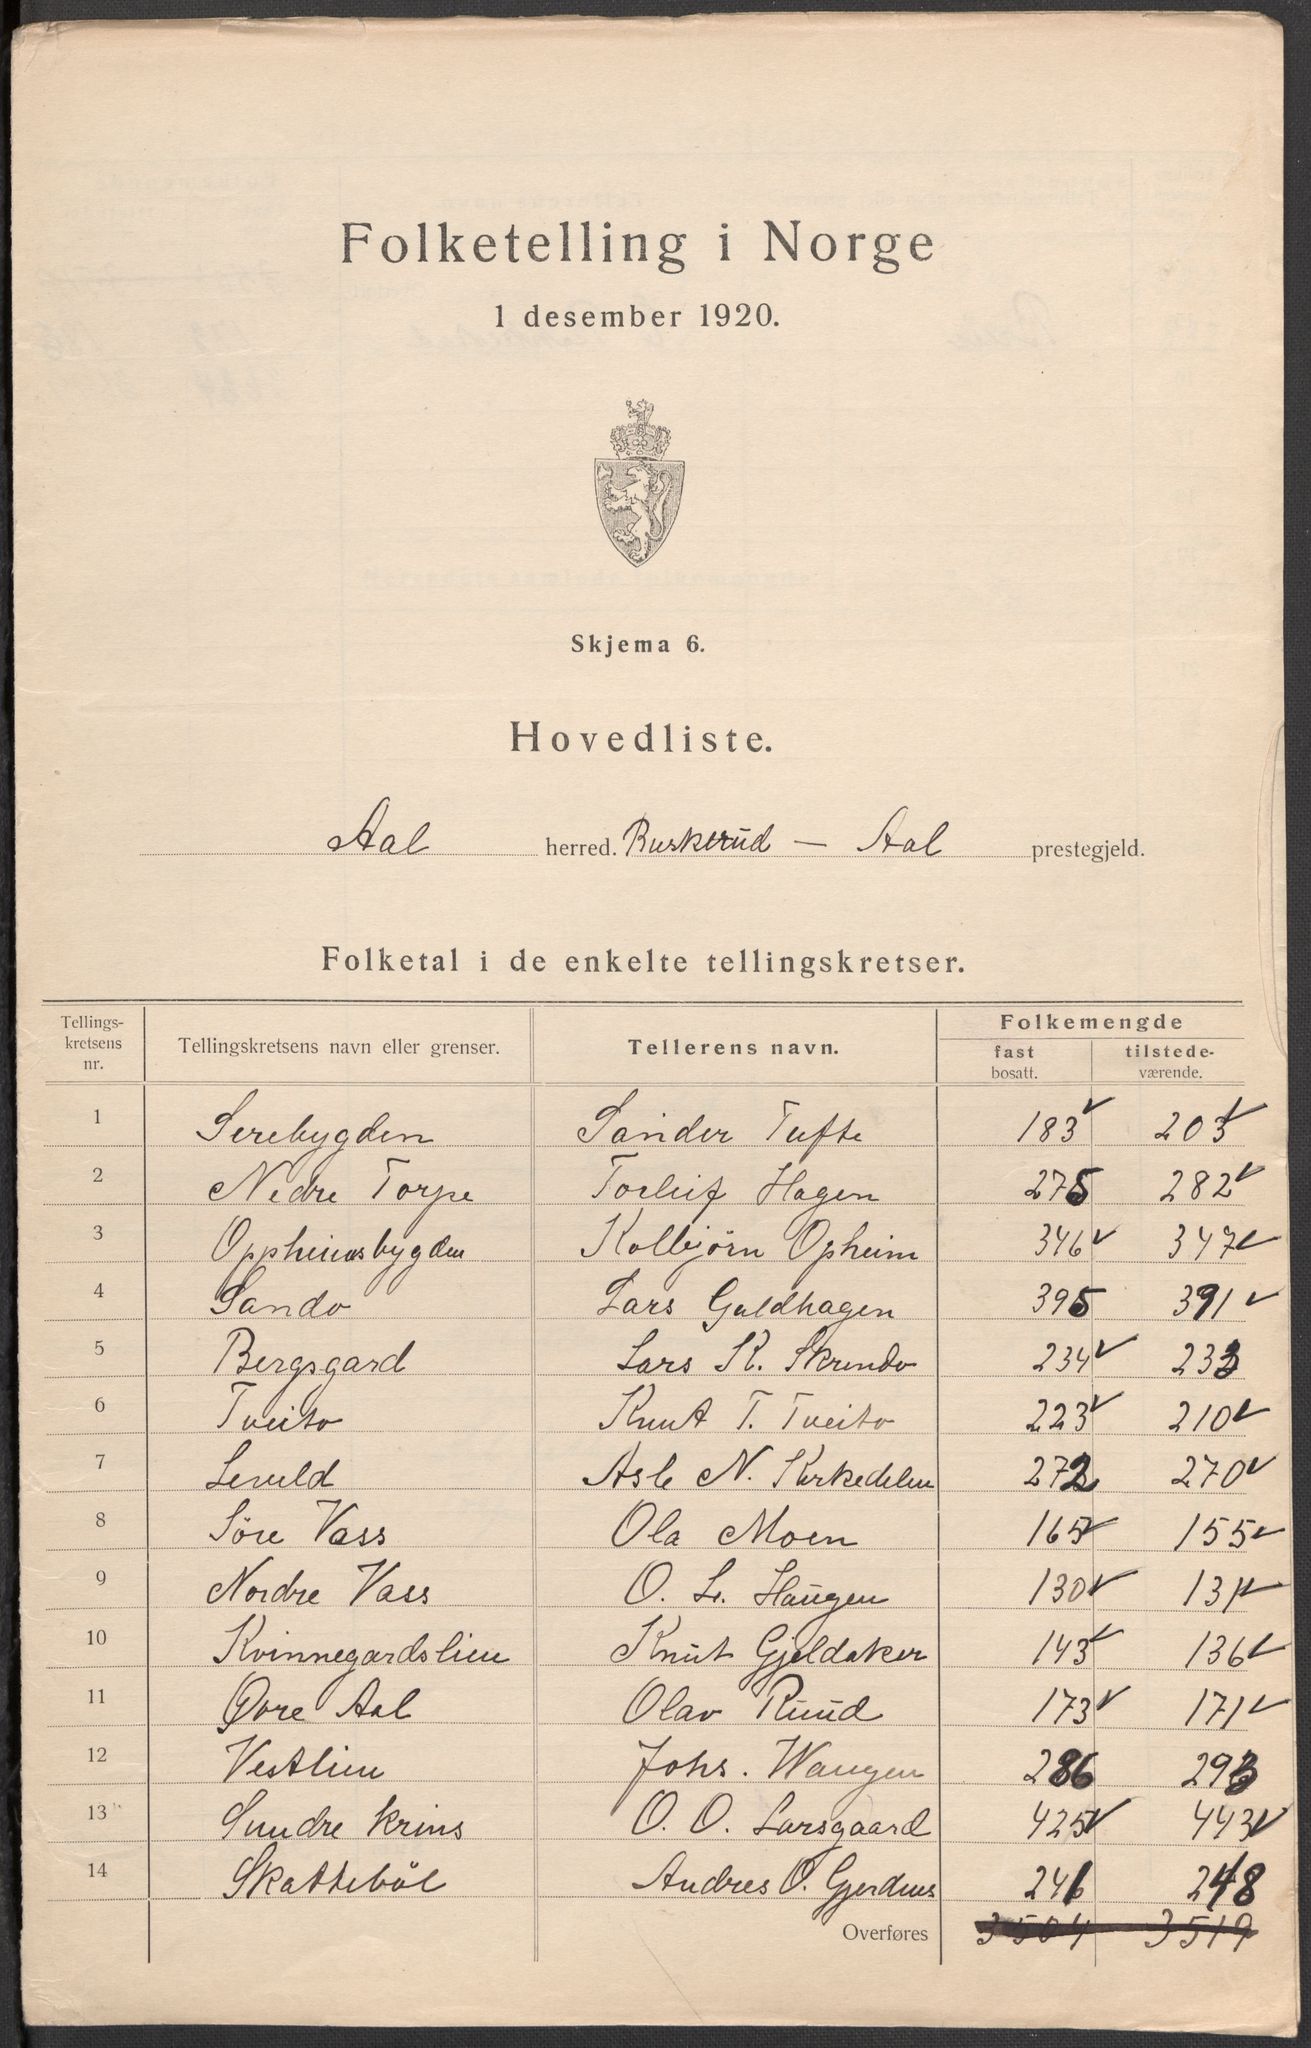 Folketelling i Norge
1 desember 1920.
Skjema 6.
Hovedliste.
Aal herred. Buskerud — Aal prestegjeld.
Folketal i de enkelte tellingskretser.
Tellings-kretsens nr. Tellingskretsens navn eller grenser. Tellerens navn. Folkemengde fast bosatt. tilstede-værende.
1 Serebygden Sander Tufte 183 203
2 Nedre Torpe Torleif Hagen 275 282
3 Oppheimsbygden Kolbjörn Opheim 346 347
4 Sando Lars Guldhagen 395 391
5 Bergsgard Lars K. Skrindo 234 233
6 Tveito Knut T. Tveito 223 210
7 Leveld Asle N. Kirkedelen 272 270
8 Söre Vass Ola Moen 165 155
9 Nordre Vass O. L. Haugen 130 131
10 Kvinnegardslien Knut Gjeldaker 143 136
11 Øvre Aal Olav Ruud 173 171
12 Vestlien Johs. Wangen 286 293
13 Sundre krins O. O. Larsgaard 425 443
14 Skattebøl Andres O. Gjerdnes 241 248
Overføres 3504 3519